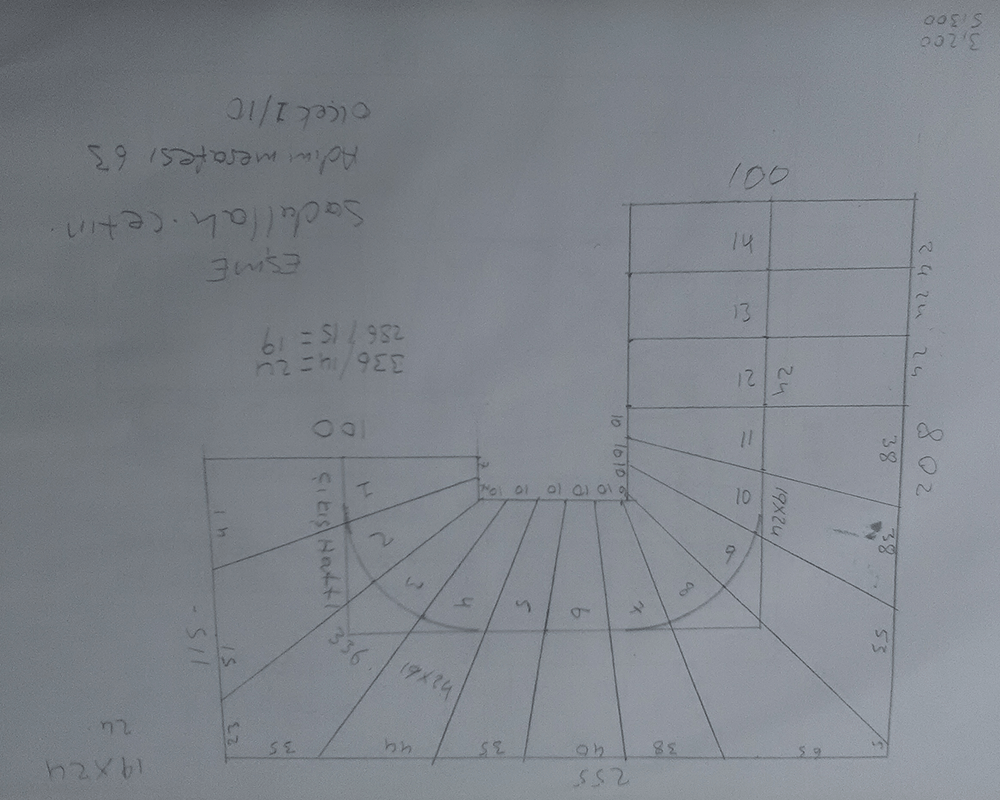 3,200
5,300
19x24
24
336/14=24
286/15=19
EŞME
Sadullah.Çetin.
Adım mesafesi 63
Ölçek 1/10
100
14
13
12
11
10
9
8
7
6
5
4
3
2
1
24
24
24
24
38
38
53
5
208
10
10
10
10
10
10
10
19x24
100
ÇIKIŞ HATTI
336
115
23
35
44
35
40
38
255